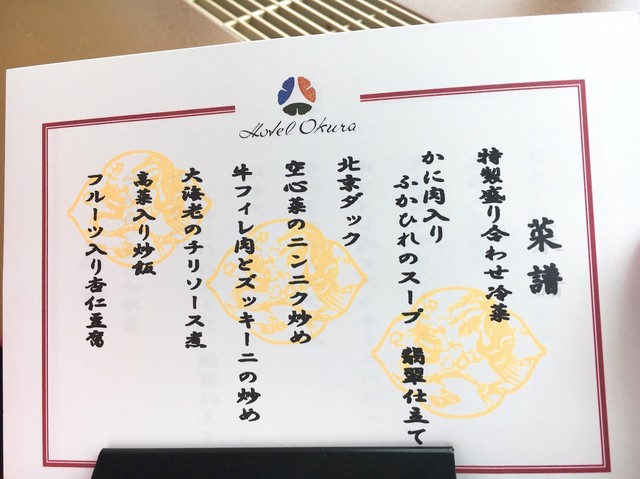 Hotel Okura
菜譜
特製盛り合わせ冷菜
かに肉入り
ふかひれのスープ 翡翠仕立て
北京ダック
空心菜のニンニク炒め
牛フィレ肉とズッキーニの炒め
大海老のチリソース煮
高菜入り炒飯
フルーツ入り杏仁豆腐